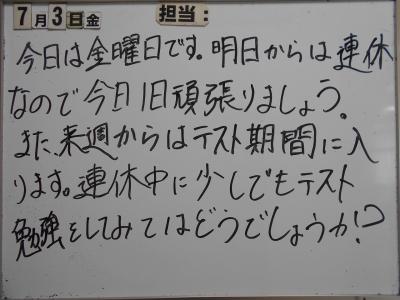 7月3日金 担当:
今日は金曜日です。明日からは連休
なので今日1日頑張りましょう。
また、来週からはテスト期間に入
ります。連休中に少しでもテスト
勉強をしてみてはどうでしょうか!?